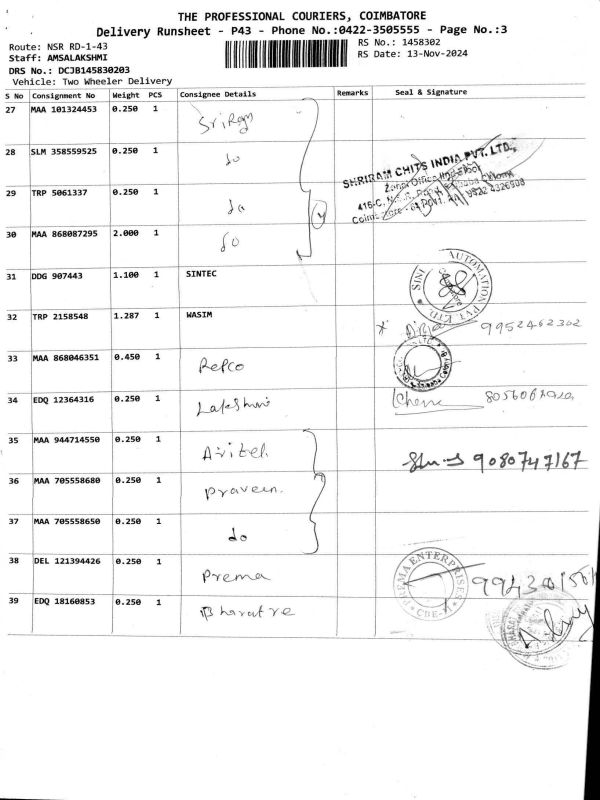 THE PROFESSIONAL COURIERS, COIMBATORE
Delivery Runsheet - P43 - Phone No.:0422-3505555 - Page No.:3
Route: NSR RD-1-43
RS No.: 1458302
Staff: AMSALAKSHMI
RS Date: 13-Nov-2024
DRS No.: DCJB145830203
Vehicle: Two Wheeler Delivery
S No Consignment No Weight PCS Consignee Details Remarks Seal & Signature
27 MAA 101324453 0.250 1 Sriram
28 SLM 358559525 0.250 1 do
SHRIRAM CHITS INDIA PVT. LTD.,
29 TRP 5061337 0.250 1 do
30 MAA 868087295 2.000 1 do
31 DDG 907443 1.100 1 SINTEC
AUTOMATION PVT. LTD.
32 TRP 2158548 1.287 1 WASIM
9952462302
33 MAA 868046351 0.450 1 Repco
34 EDQ 12364316 0.250 1 Lakshmi
35 MAA 944714550 0.250 1
9080747167
36 MAA 705558680 0.250 1 Praveen.
37 MAA 705558650 0.250 1 do
38 DEL 121394426 0.250 1 Prema
PREMA ENTERPRISES
39 EDQ 18160853 0.250 1